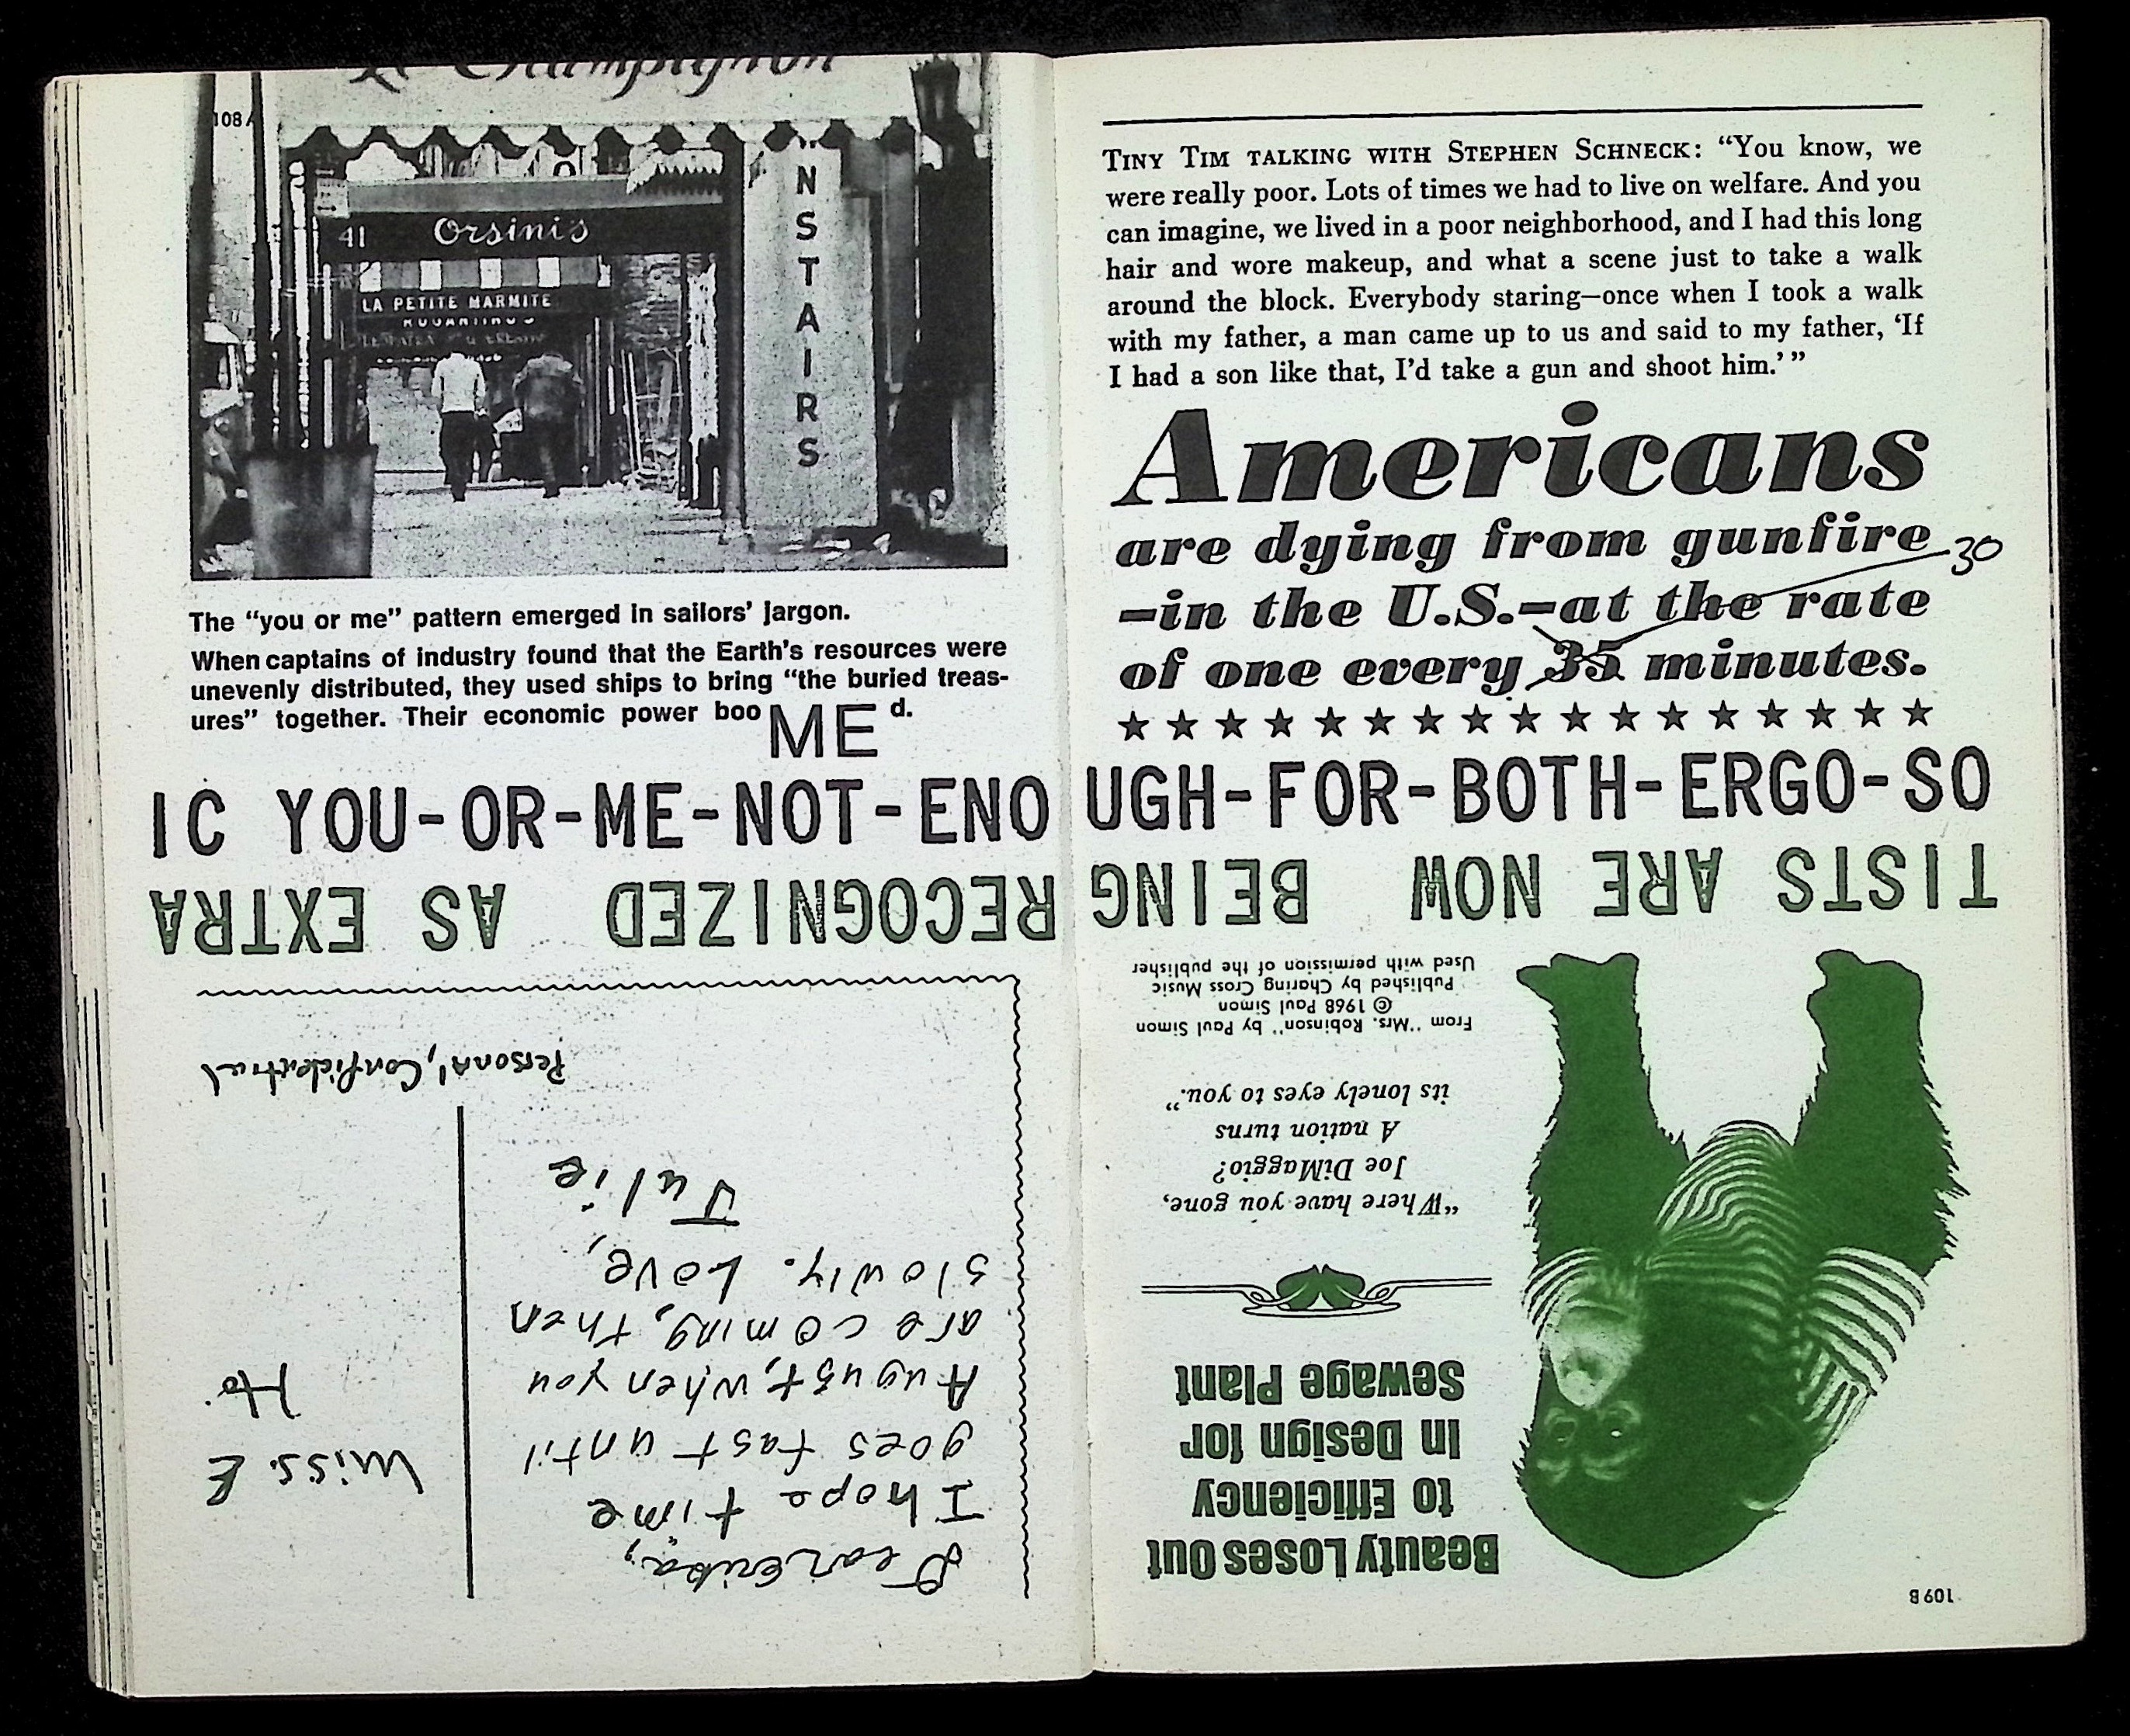 Le Champignon
108 A
41 Orsini's
LA PETITE MARMITE
INSTAIRS
The “you or me” pattern emerged in sailors’ jargon.
When captains of industry found that the Earth’s resources were
unevenly distributed, they used ships to bring “the buried treas-
ures” together. Their economic power boo ME d.
TINY TIM TALKING WITH STEPHEN SCHNECK: “You know, we
were really poor. Lots of times we had to live on welfare. And you
can imagine, we lived in a poor neighborhood, and I had this long
hair and wore makeup, and what a scene just to take a walk
around the block. Everybody staring—once when I took a walk
with my father, a man came up to us and said to my father, ‘If
I had a son like that, I’d take a gun and shoot him.’ ”
Americans
are dying from gunfire
—in the U.S.—at the rate
of one every 35 minutes.
30
★ ★ ★ ★ ★ ★ ★ ★ ★ ★ ★ ★ ★ ★ ★ ★ ★
IC YOU-OR-ME-NOT-ENOUGH-FOR-BOTH-ERGO-SO
109 B
Beauty Loses Out
to Efficiency
In Design for
Sewage Plant
“Where have you gone,
Joe DiMaggio?
A nation turns
its lonely eyes to you.”
From "Mrs. Robinson" by Paul Simon
© 1968 Paul Simon
Published by Charing Cross Music
Used with permission of the publisher
Dear Erika,
I hope time
goes fast until
August, when you
are coming, then
slowly. Love,
Julie
Miss. E
Ho
Personal, Confidential
TISTS ARE NOW BEING RECOGNIZED AS EXTRA